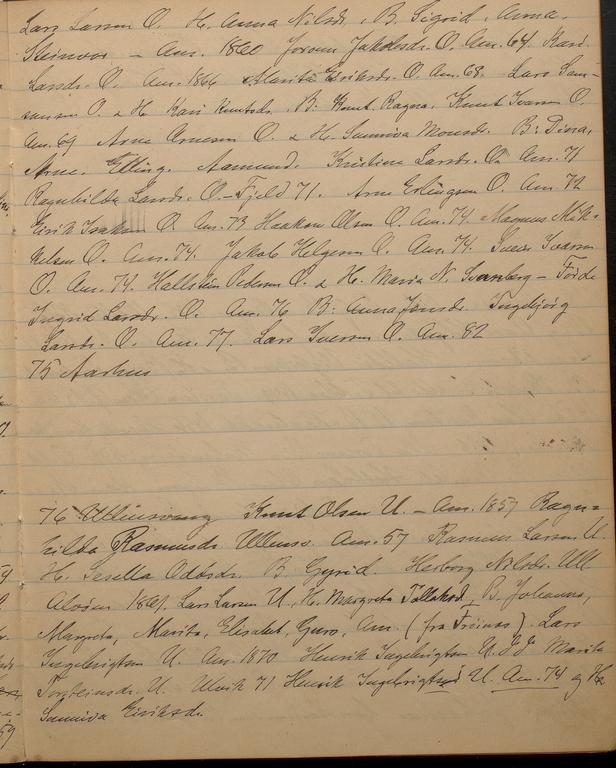 Lars Larsen O. H. Anna Nilsdr, B. Sigrid, Anna,
Steinvor – Am. 1860 Joram Jakobsdr. O. Am. 64. Kari
Larsdr. O. Am. 1866 Marita Eriksdr. O. Am. 68. Lars Sam-
sonsen O. & H. Kari Knutsdr. B: Knut. Ragna. Knut Ivarsen O.
Am. 69 Arne Arnesen O. & H. Sunniva Monsdr. B: Dina,
Arne. Elling. Aamund. Kristine Larsdr. O. Am. 71
Ragnhilda Larsdr. O. – Fjeld 71. Arne Erlingsen O. Am. 72
Eirik Isaksen O. Am. 73 Haakon Olsen O. Am. 74. Magnus Mik-
kelsen O. Am. 74. Jakob Helgesen O. Am. 74. Sver Ivarsen
O. Am. 74. Hallsten Pedersen O. & H. Maria N. Svanberg – Förde
Ingrid Larsdr. O. Am. 76 B: Anna Jensdr. Ingebjörg
Larsdr. O. Am. 77. Lars Iversen O. Am. 82
75 Aarhus
76 Ullensvang Knut Olsen U. – Am. 1857 Ragn-
hilda Rasmusdr. Ullensv. Am. 57 Rasmus Larsen U.
H. Sesella Oddsdr. B. Gyrid. Herborg Nilsdr. Ull
1861. Lars Larsen U, H. Margreta Tollaksd. B. Johanna,
Margreta, Marita, Elisabet, Guro, Am. (fra). Lars
Ingebrigtsen U. Am. 1870 Henrik Ingebrigtsen U. Marita
Torsteinsdr. U. Ulvik 71 Henrik Ingebrigtsen U. Am. 74 og H.
Sunniva Eiriksdr.